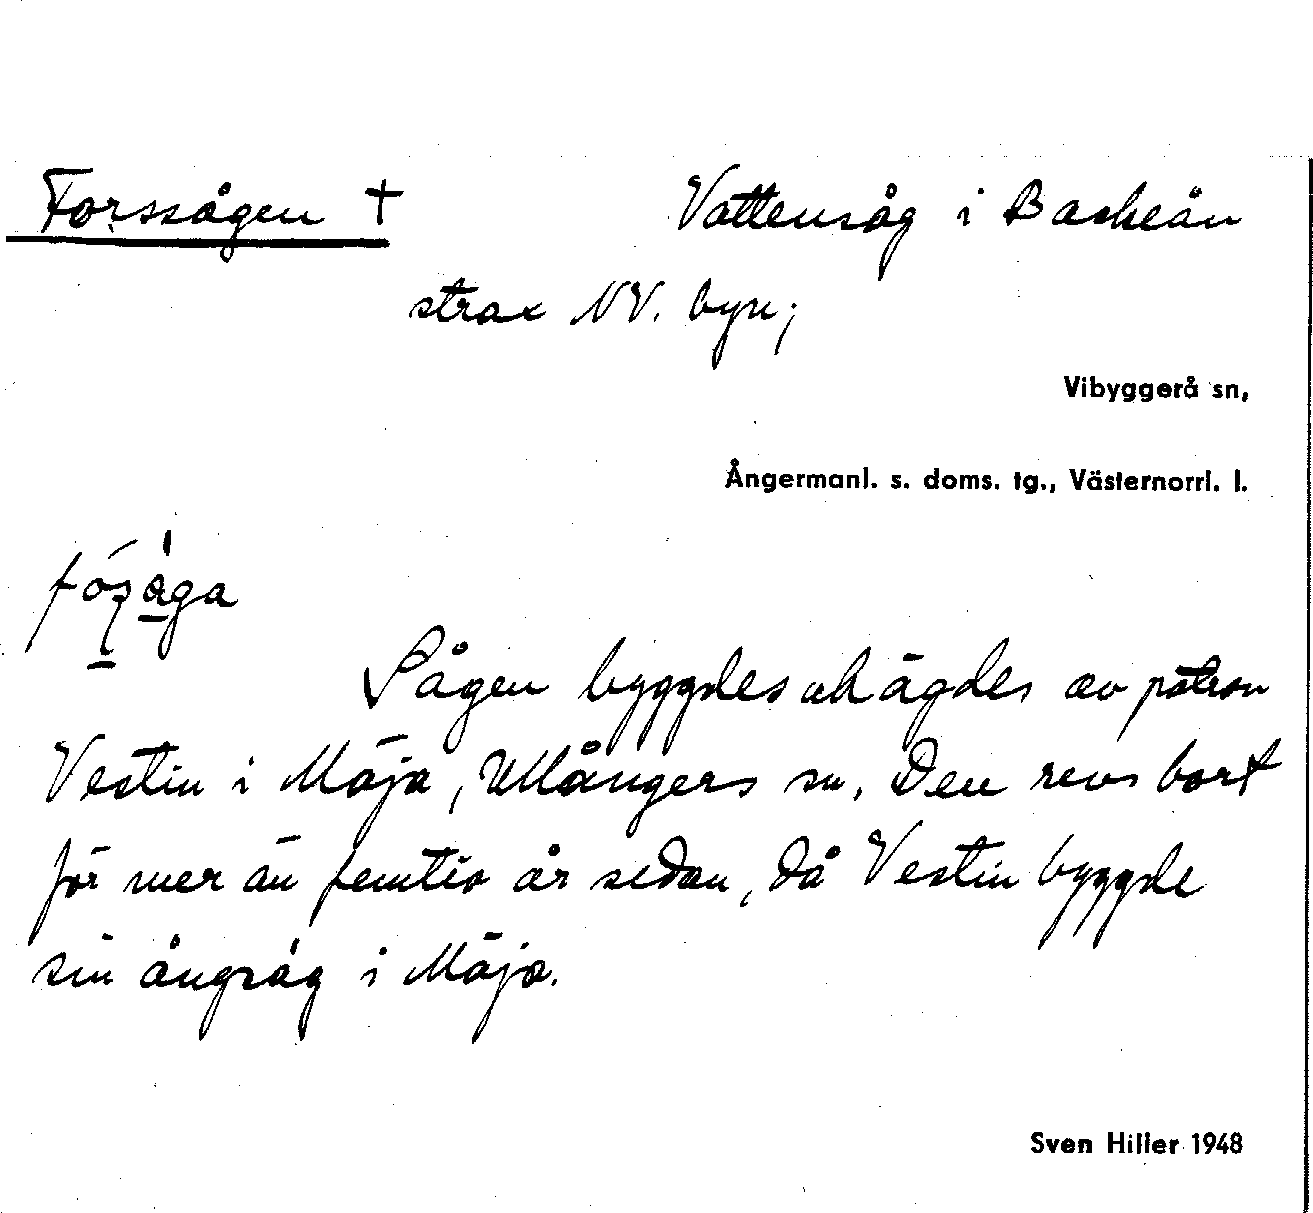 Forssågen † Vattensåg i Baskeån
strax NV. byn;
Vibyggerå sn,
Ångermanl. s. doms. tg., Västernorrl. l.
Sågen byggdes och ägdes av patron
Vestin i Mäja, Ullångers sn. Den revs bort
för mer än femtio år sedan, då Vestin byggde
sin ångsåg i Mäja.
Sven Hiller 1948